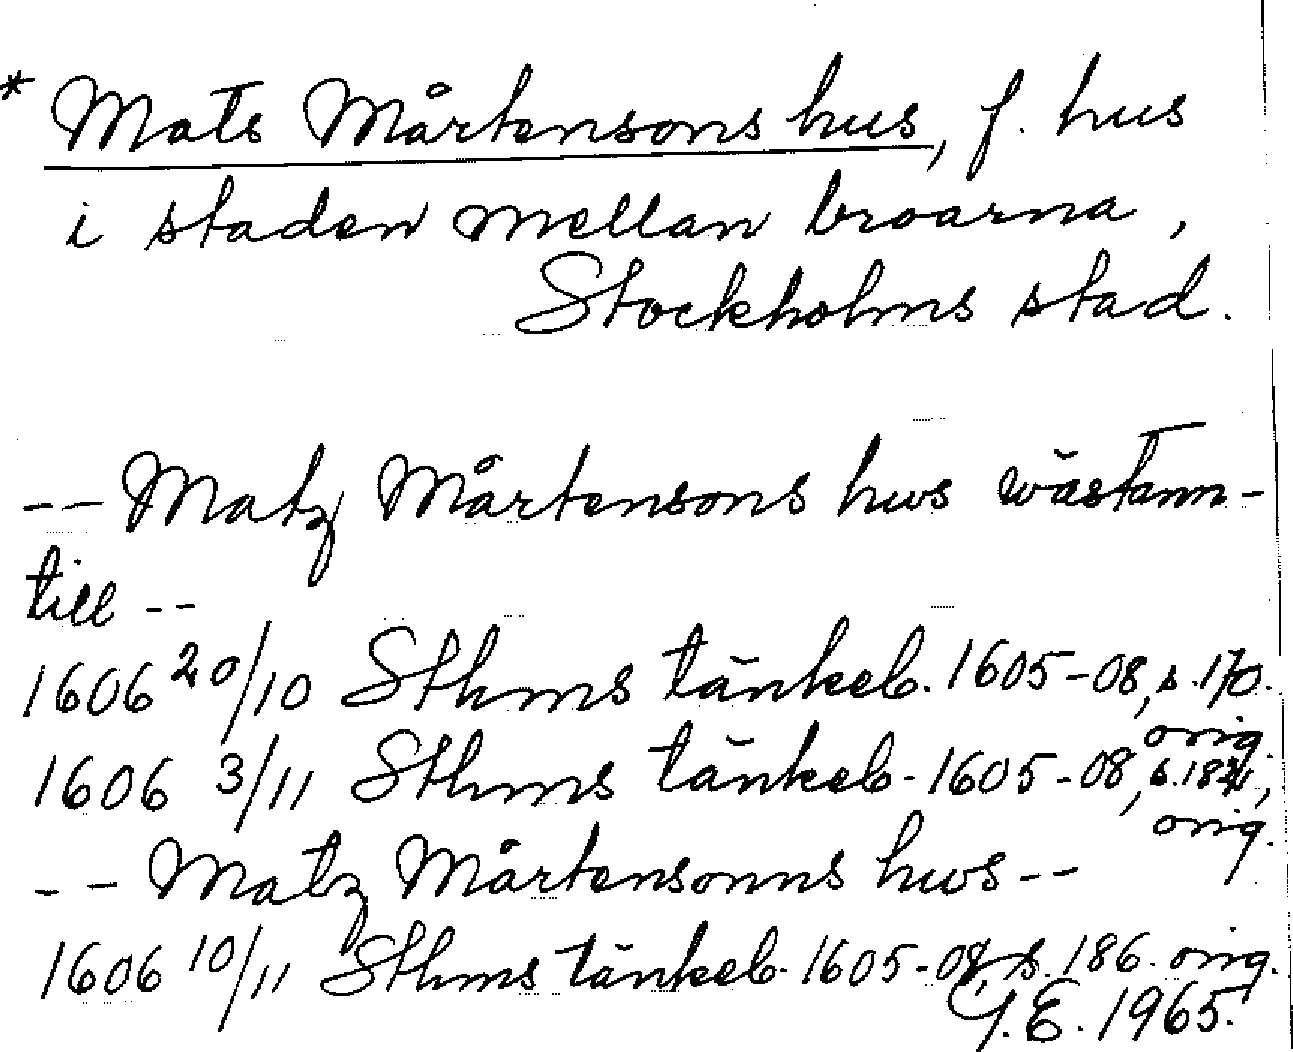 * Mats Mårtensons hus, f. hus
i staden mellan broarna,
Stockholms stad.
-- Matz Mårtensons hws wästann-
till --
1606 20/10 Sthms tänkeb. 1605-08, s. 170.
orig.
1606 3/11 Sthms tänkeb. 1605-08, s.
orig.
-- Matz Mårtensonns hws --
1606 10/11 Sthms tänkeb. 1605-08, s. 186. orig.
G.E. 1965.